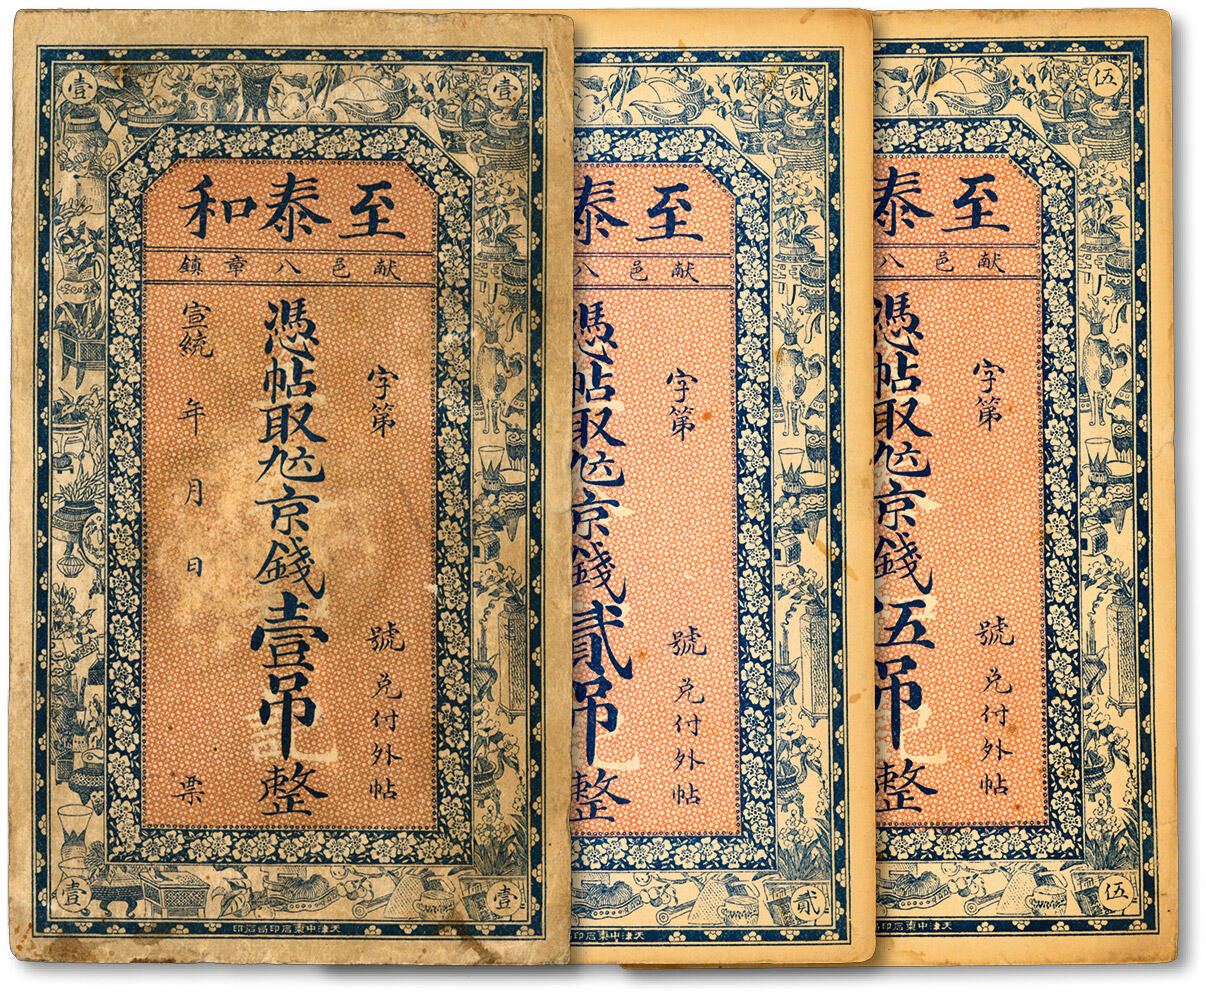 壹 壹
至泰和
献邑八章鎮
字第 號兑付外帖
憑帖取 京錢壹吊整
宣統 年 月 日 票
壹 壹
天津中東石印局石印
貳
至泰
献邑八
字第 號兑付外帖
憑帖取 京錢貳吊整
貳
天津中東石印
伍
至泰
献邑八
字第 號兑付外帖
憑帖取 京錢伍吊整
伍
天津中東石印